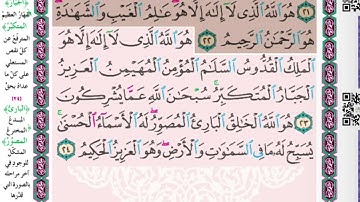 هُوَ ٱللَّهُ ٱلَّذِى لَآ إِلَٰهَ إِلَّا هُوَ عَٰلِمُ ٱلْغَيْبِ وَٱلشَّهَٰدَةِ
هُوَ ٱلرَّحْمَٰنُ ٱلرَّحِيمُ ٢٢ هُوَ ٱللَّهُ ٱلَّذِى لَآ إِلَٰهَ إِلَّا هُوَ
ٱلْمَلِكُ ٱلْقُدُّوسُ ٱلسَّلَٰمُ ٱلْمُؤْمِنُ ٱلْمُهَيْمِنُ ٱلْعَزِيزُ
ٱلْجَبَّارُ ٱلْمُتَكَبِّرُ سُبْحَٰنَ ٱللَّهِ عَمَّا يُشْرِكُونَ
٢٣ هُوَ ٱللَّهُ ٱلْخَٰلِقُ ٱلْبَارِئُ ٱلْمُصَوِّرُ لَهُ ٱلْأَسْمَآءُ ٱلْحُسْنَىٰ
يُسَبِّحُ لَهُۥ مَا فِى ٱلسَّمَٰوَٰتِ وَٱلْأَرْضِ وَهُوَ ٱلْعَزِيزُ ٱلْحَكِيمُ ٢٤
القهار العظيم
المتكبر
المترفع عن
كل نقص
المتعاظم
على كل ما
عداه بحق
البارئ
المبدع
المخترع
المصور
المشكل
للموجود في
آخر مراحله
بالصورة التي
قدرها